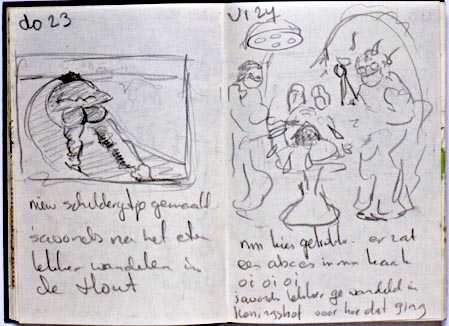 do 23
nieuw schildertje gemaakt
's avonds na het eten
lekker wandelen in
de Hout
vr 24
mn kies getrokken. er zat
een abces in mn kaak
oi oi oi
's avonds lekker gewandeld in
Koningshof voor hoe dat ging